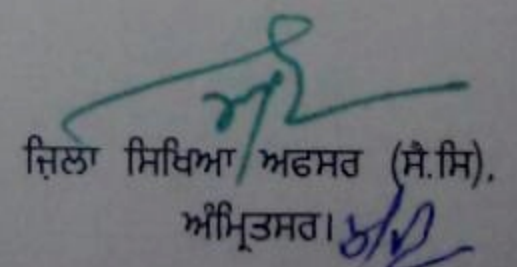 ਜ਼ਿਲਾ ਸਿਖਿਆ ਅਫਸਰ (ਸੈ.ਸਿ),
ਅੰਮ੍ਰਿਤਸਰ।